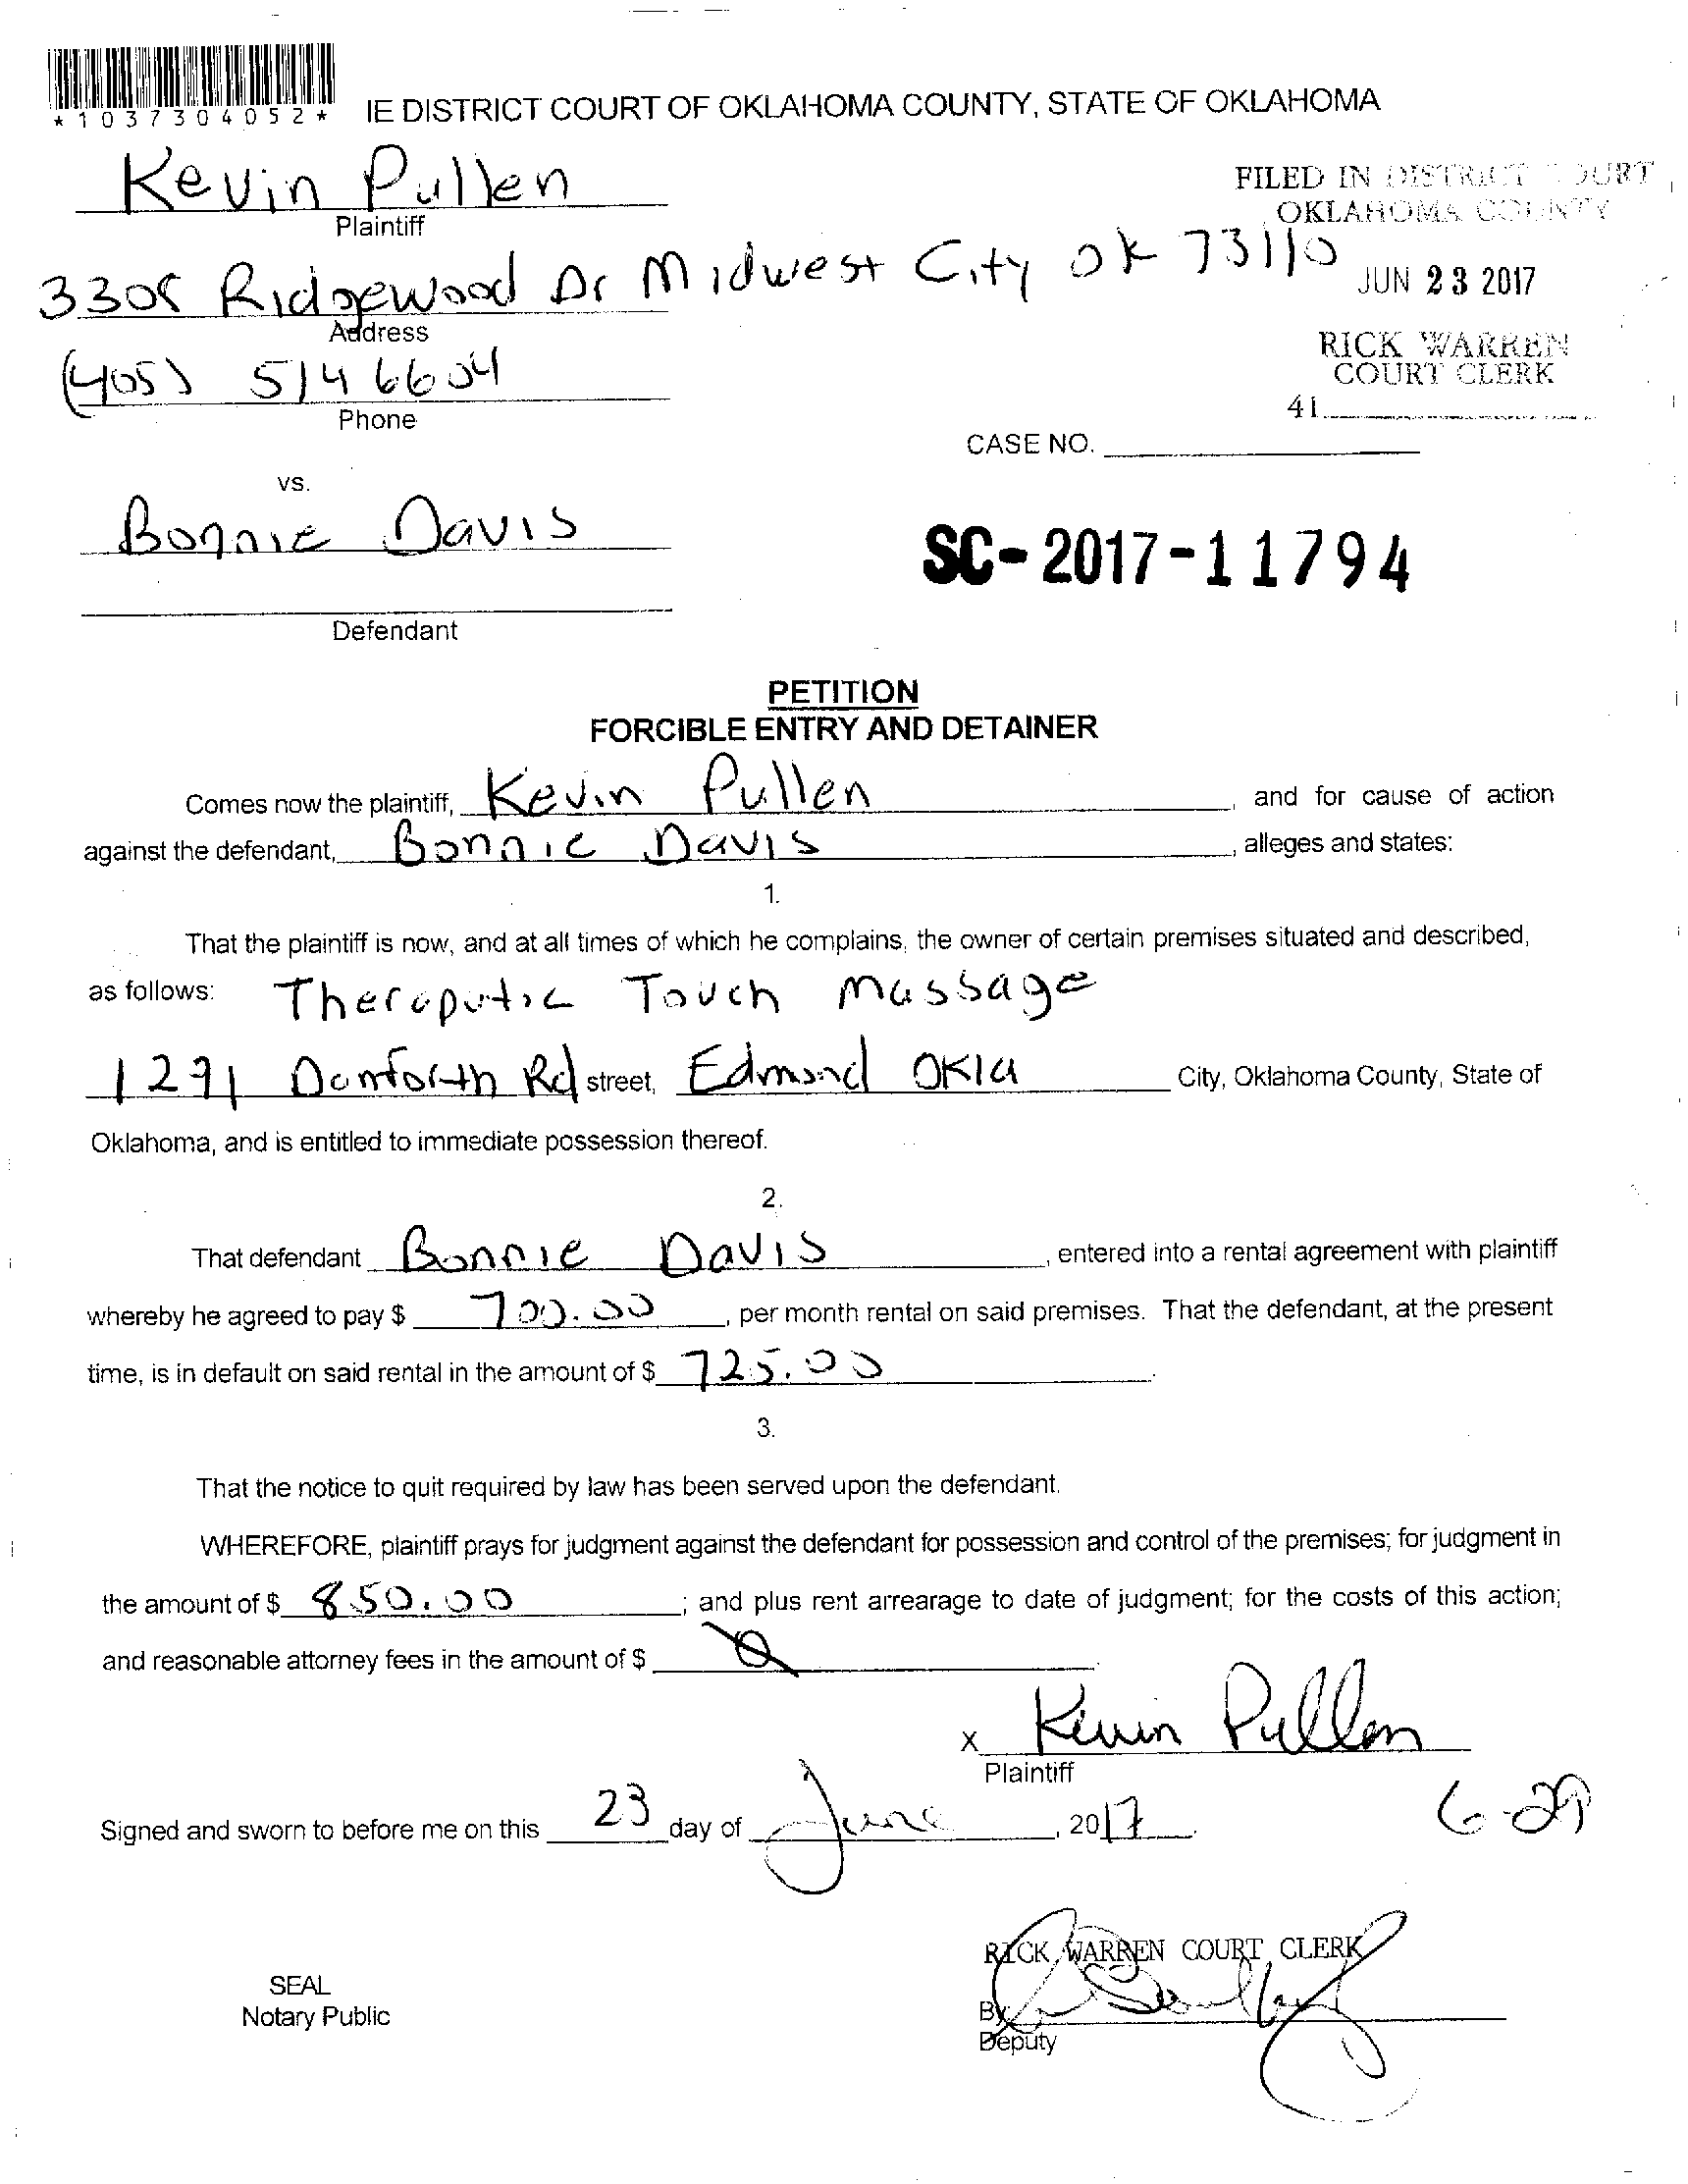 *1037304052*
IE DISTRICT COURT OF OKLAHOMA COUNTY, STATE OF OKLAHOMA
Kevin Pullen
Plaintiff
FILED IN DISTRICT COURT
OKLAHOMA COUNTY
3308 Ridgewood Dr Midwest City OK 73110
JUN 23 2017
Address
RICK WARREN
COURT CLERK
(405) 514 6604
Phone
41
CASE NO.
vs.
Bonnie Davis
SC-2017-11794
Defendant
PETITION
FORCIBLE ENTRY AND DETAINER
Comes now the plaintiff, Kevin Pullen, and for cause of action
against the defendant, Bonnie Davis, alleges and states:
1.
That the plaintiff is now, and at all times of which he complains, the owner of certain premises situated and described,
as follows: Theraputic Touch Massage
1291 Danforth Rd street, Edmond Okla City, Oklahoma County, State of
Oklahoma, and is entitled to immediate possession thereof.
2.
That defendant Bonnie Davis, entered into a rental agreement with plaintiff
whereby he agreed to pay $ 700.00, per month rental on said premises. That the defendant, at the present
time, is in default on said rental in the amount of $ 725.00.
3.
That the notice to quit required by law has been served upon the defendant.
WHEREFORE, plaintiff prays for judgment against the defendant for possession and control of the premises; for judgment in
the amount of $ 850.00; and plus rent arrearage to date of judgment; for the costs of this action;
and reasonable attorney fees in the amount of $ 0.
x Kevin Pullen
Plaintiff
6-29
Signed and sworn to before me on this 23 day of June, 2017.
RICK WARREN COURT CLERK
SEAL
Notary Public
By
Deputy